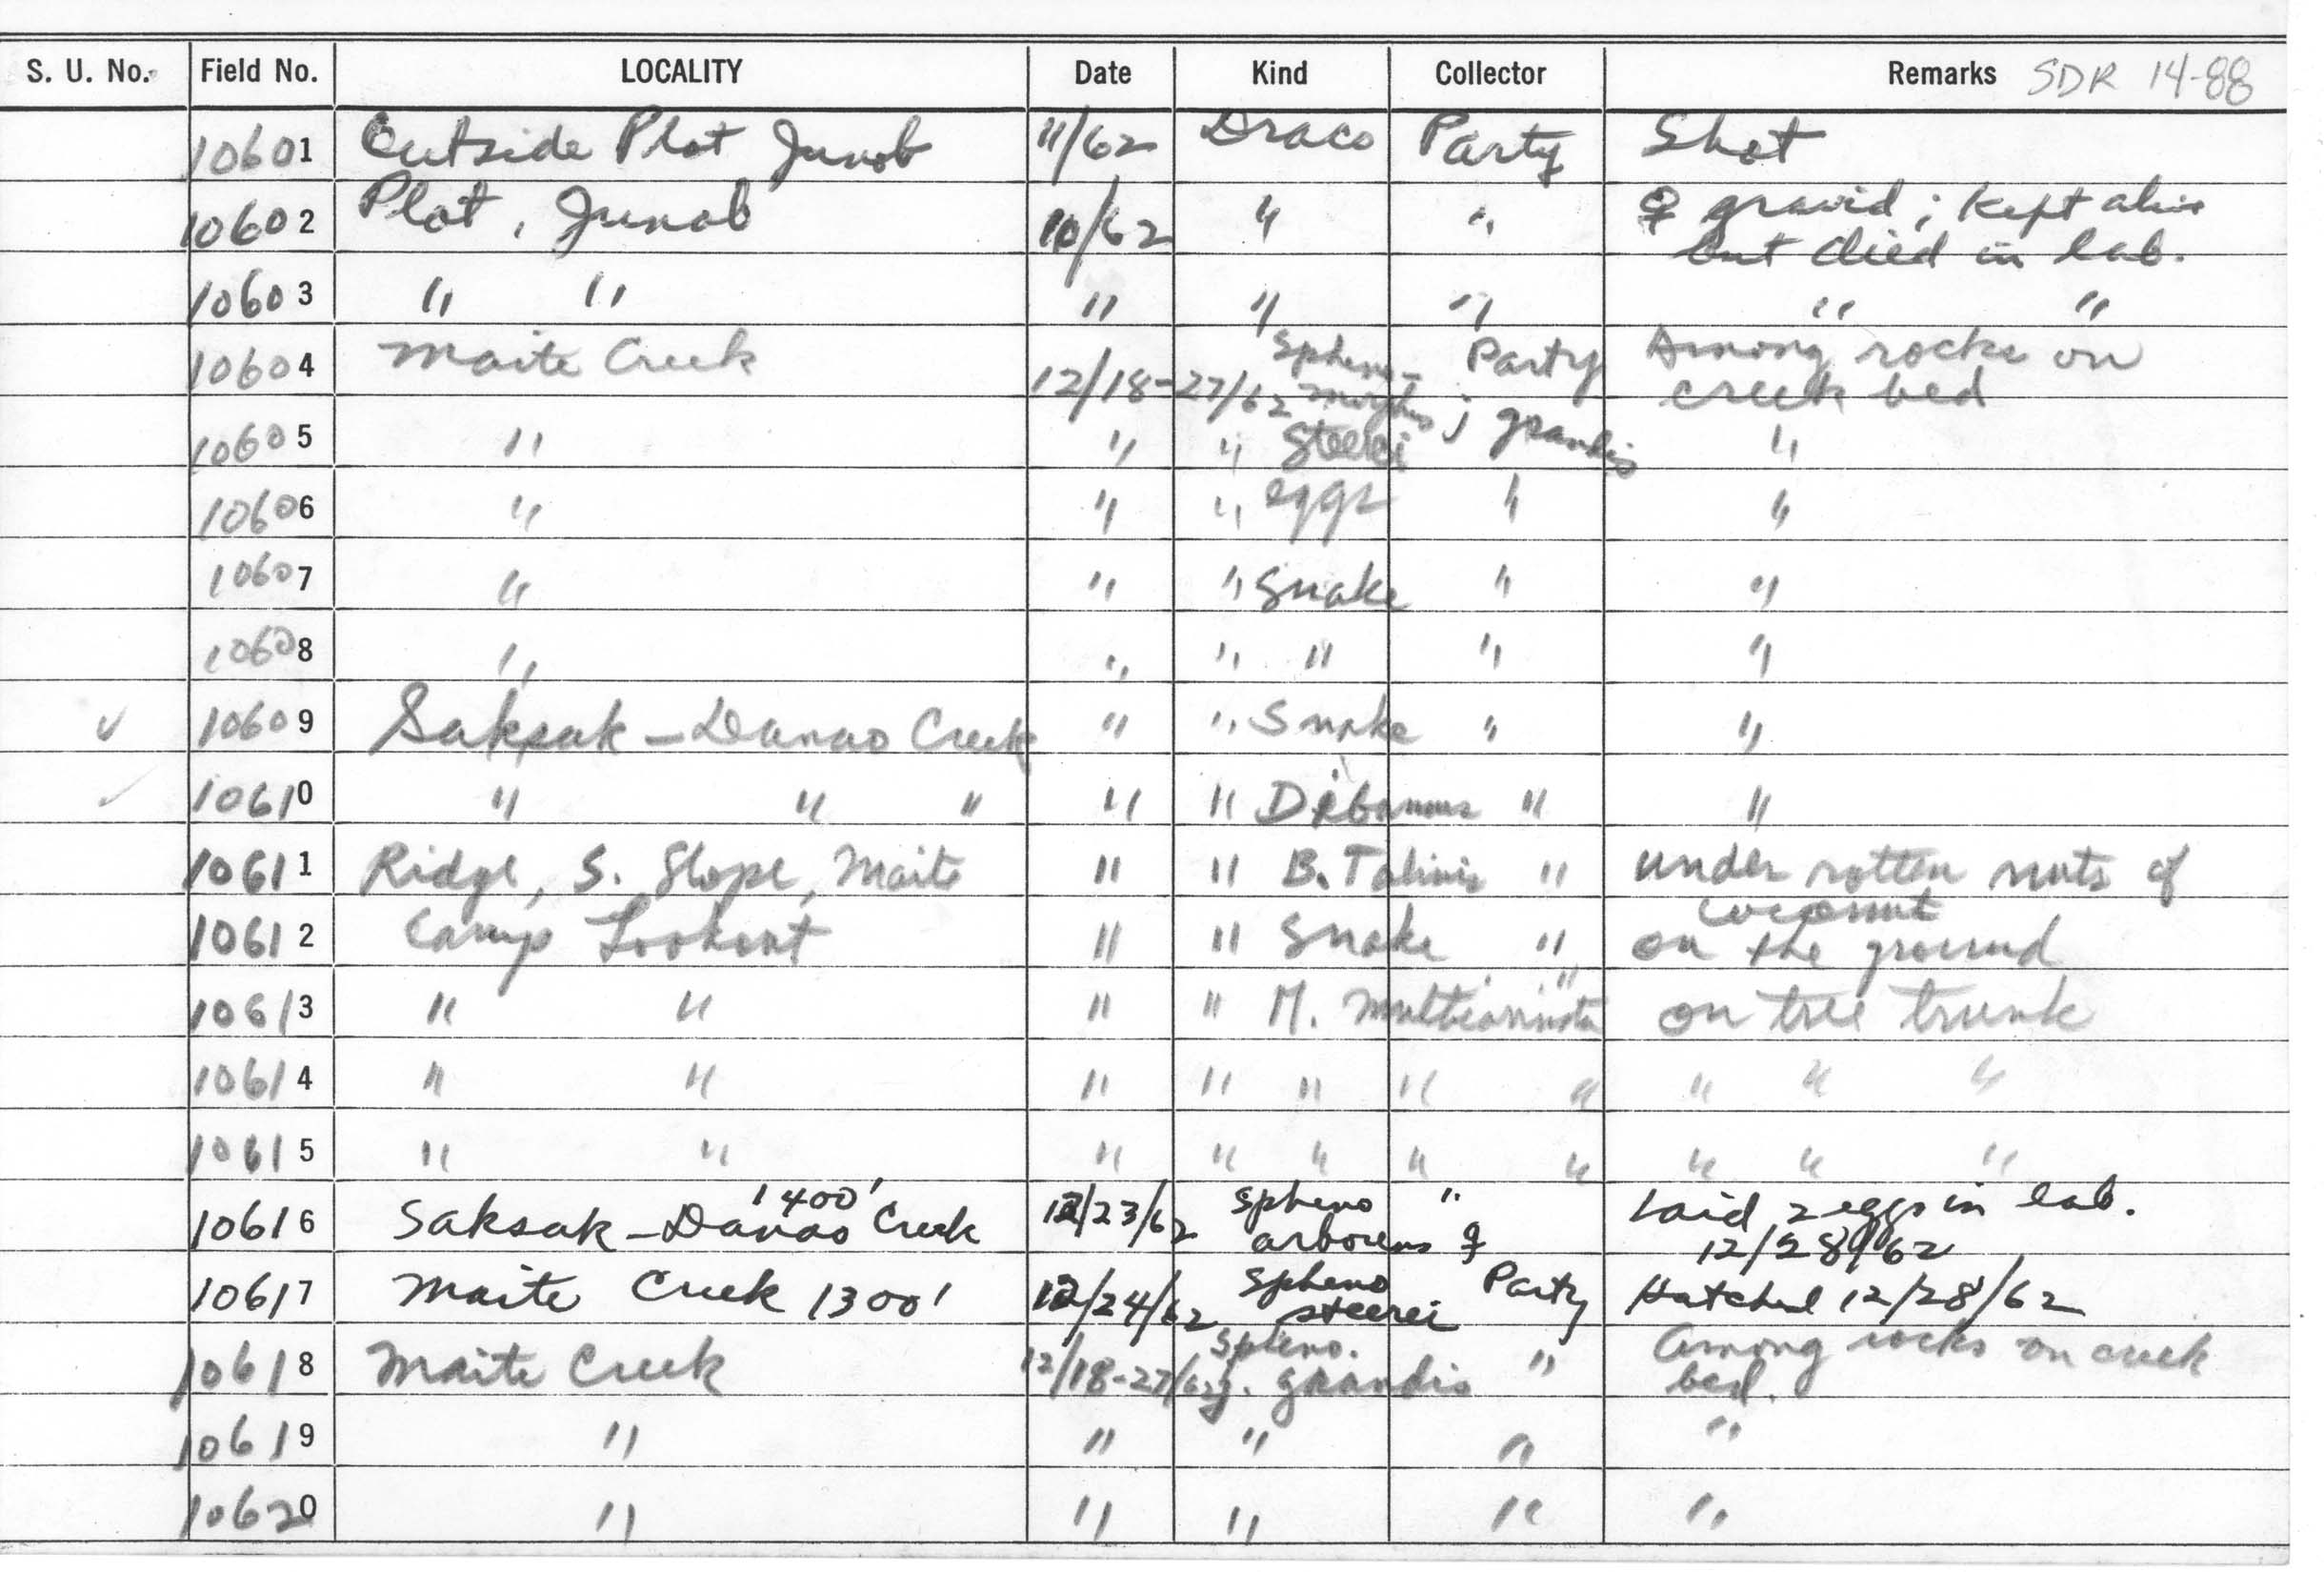 S. U. No. Field No. LOCALITY Date Kind Collector Remarks SDR 14-88
10601 Outside Plot Junob 11/62 Draco Party Shot
10602 Plot, Junob 10/62 " " ♀ gravid; kept alive
but died in lab.
10603 " " " " " " "
10604 Maite Creek 12/18-27/62 Spheno- Party Among rocks on
morphus creek bed
10605 " " " Steerei ; grandis "
10606 " " " eggs " "
10607 " " " Snake " "
10608 " " " " " "
✓ 10609 Saksak - Danao Creek " " Snake " "
✓ 10610 " " " " " Dibamus " "
10611 Ridge, S. Slope, Maite " " B. Talinis " under rotten nuts of
coconut
10612 Camp Lookout " " Snake " on the ground
10613 " " " " M. multicarinata " on tree trunk
10614 " " " " " " " " " "
10615 " " " " " " " " " "
10616 Saksak - Danao 1400' Creek 12/23/62 Spheno " Laid 2 eggs in lab.
arboreus ♀ 12/28/62
10617 Maite Creek 1300' 12/24/62 Spheno Party Hatched 12/28/62
steerei
10618 Maite Creek 12/18-27/62 Spheno. " Among rocks on creek
j. grandis bed.
10619 " " " " "
10620 " " " " "